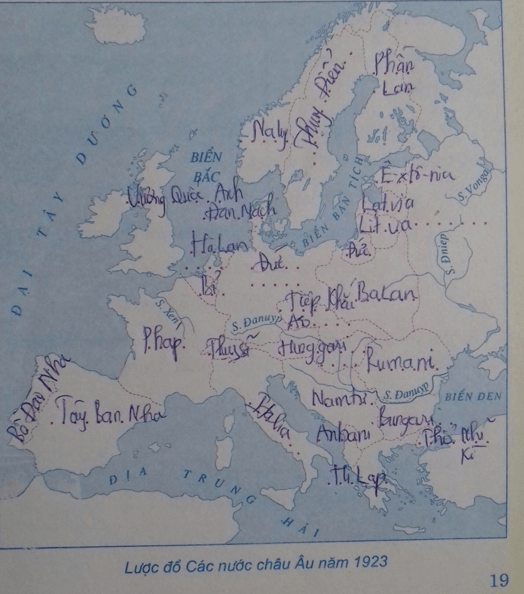 Phần
Lan
Thụy Điển
Na Uy
BIỂN
BẮC
ĐẠI TÂY DƯƠNG
Vương Quốc Anh
Đan Mạch
BIỂN BAN TÍCH
Extô-nia
S. Vonga
Lat via
Lit va
Hà Lan
Đức
Đức
S. Đniep
Bỉ
Tiệp Khắc
Ba Lan
S. Xen
S. Đanuyp
Áo
Pháp
Thụy Sĩ
Hunggari
Rumani
S. Đanuyp
BIỂN ĐEN
Nam tư
Bồ Đào Nha
Tây Ban Nha
Italia
Anbani
Bungari
Thổ Nhĩ
Kì
Hi Lạp
ĐỊA TRUNG HẢI
Lược đồ Các nước châu Âu năm 1923
19